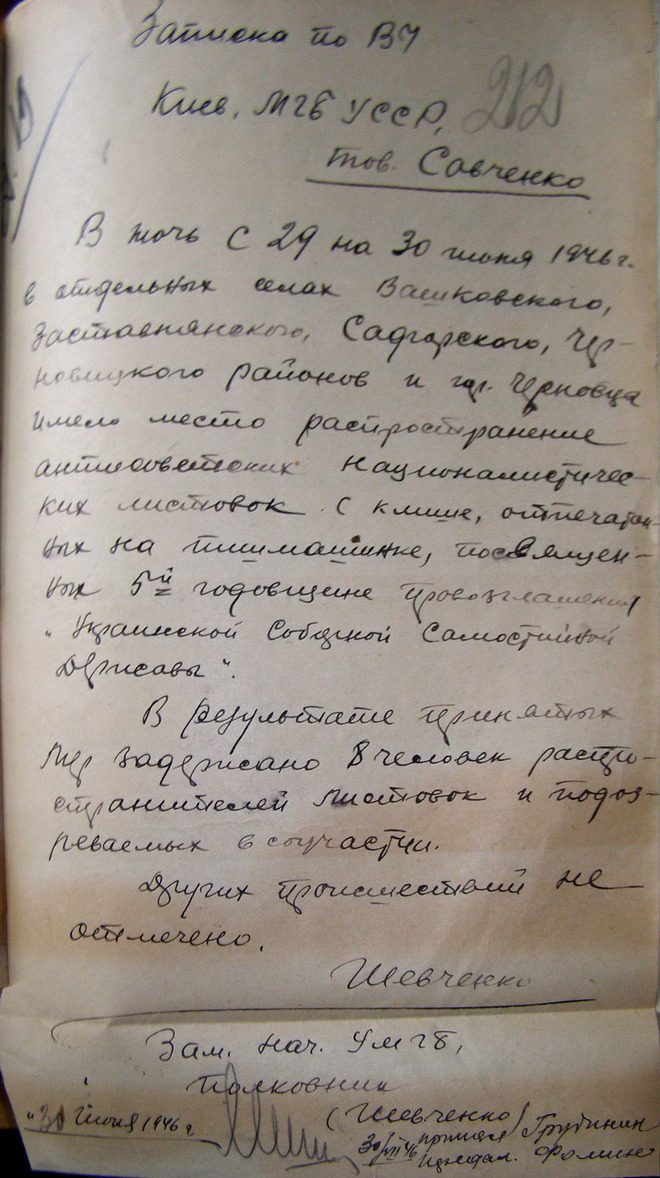 Записка по ВЧ
Киев, МГБ УССР, 212
тов. Савченко
В ночь с 29 на 30 июня 1946 г.
в отдельных селах Вашковского,
Заставнянского, Садгорского, Чер-
новицкого районов и гор. Черновцы
имело место распространение
антисоветских националистичес-
ких листовок с клише, отпечатан-
ных на пишмашинке, посвящен-
ных 5й годовщине провозглашения
"Украинской Соборной Самостийной
Державы".
В результате принятых
мер задержано 8 человек распро-
странителей листовок и подоз-
реваемых в соучастии.
Других происшествий не
отмечено.
Шевченко
Зам. нач. УМГБ,
полковник
(Шевченко)
"30 июня 1946 г.
30/VI 46 принял Грубинин
передал. Фомин